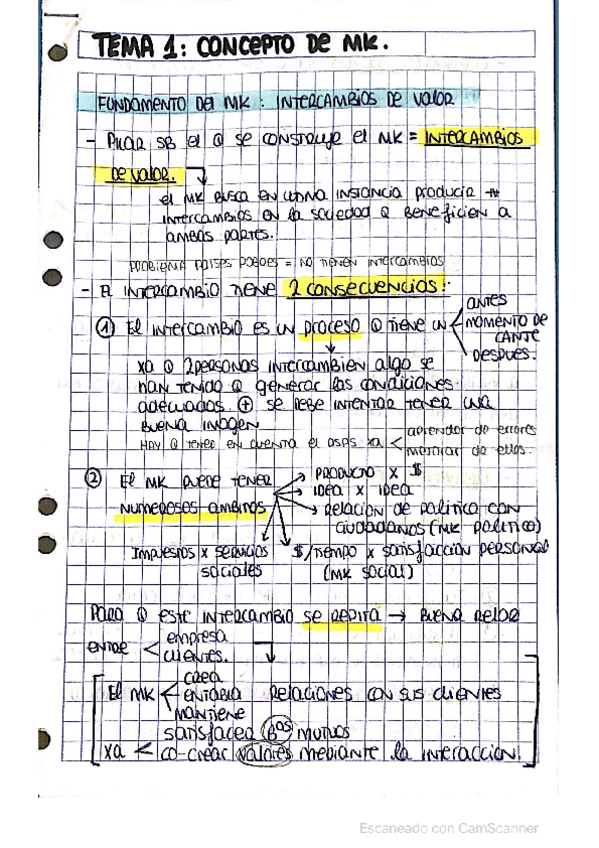 TEMA 1: CONCEPTO DE MK.
FUNDAMENTO DEL MK: INTERCAMBIOS DE VALOR
- PILAR SB EL Q SE CONSTRUYE EL MK = INTERCAMBIOS
DE VALOR.
EL MK BUSCA EN ÚLTIMA INSTANCIA PRODUCIR
INTERCAMBIOS EN LA SOCIEDAD Q BENEFICIEN A
AMBAS PARTES.
PROBLEMA PAISES POBRES = NO TIENEN INTERCAMBIOS
- EL INTERCAMBIO TIENE 2 CONSECUENCIAS:
ANTES
① EL INTERCAMBIO ES UN PROCESO Q TIENE UN MOMENTO DE
CANTE
DESPUES.
xa Q 2 PERSONAS INTERCAMBIEN algo se
HAN TENIDO Q generar las CONDICIONES
adecuadas. ⊕ se DEBE INTENTAR TENER UNA
BUENA IMAGEN
HAY Q TENER EN CUENTA EL DSPS xa < aprender de errores
mejorar de ellos.
② EL MK PUEDE TENER
NUMEROSOS AMBITOS
PRODUCTO X $
IDEA X IDEA
RELACION DE POLITICO CON
CIUDADANOS (MK POLITICO)
IMPUESTOS X SERVICIOS
SOCIALES
$/TIEMPO X SATISFACCION PERSONAL
(MK SOCIAL)
PARA Q ESTE INTERCAMBIO SE REPITA → BUENA RELAC
ENTRE < empresa
CLIENTES.
EL MK < CREA
ENTABLA
MANTIENE
RELACIONES CON SUS CLIENTES
xa < satisfacer Bos MUTUOS
CO-CREAR VALORES MEDIANTE la INTERACCION.
Escaneado con CamScanner